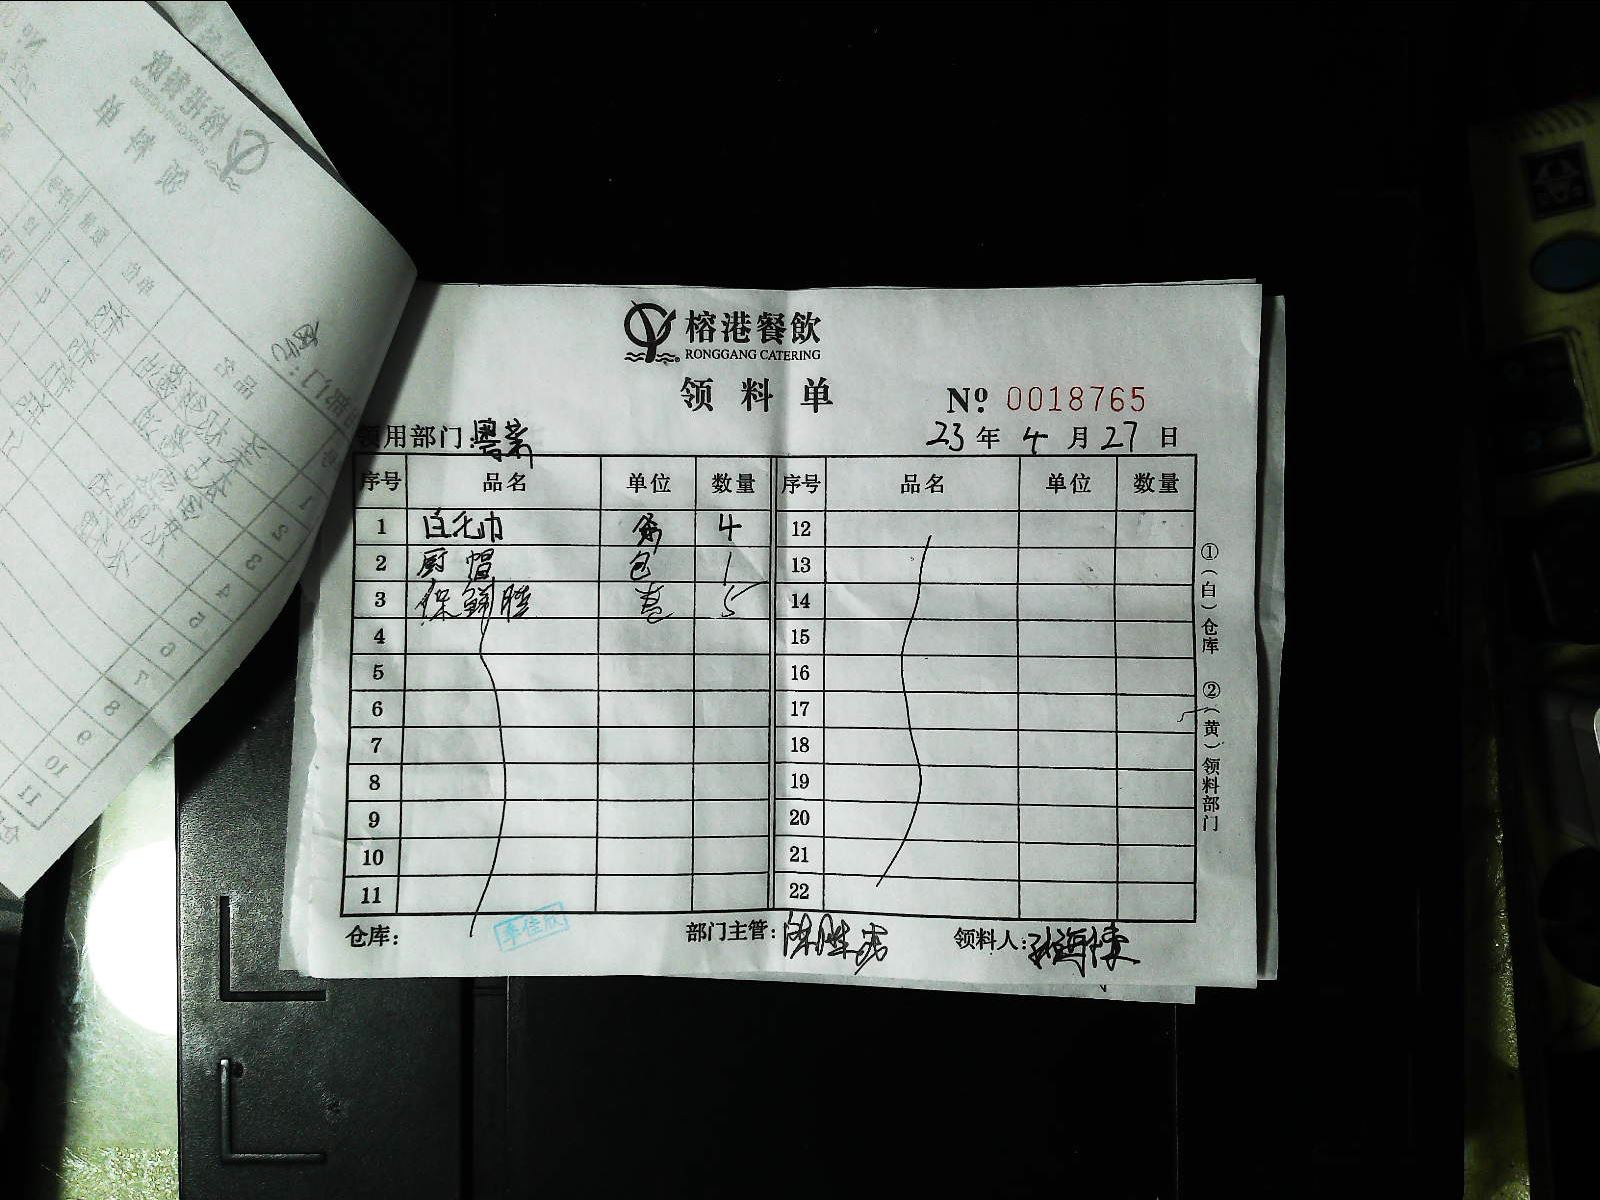 榕港餐飲
RONGGANG CATERING
领料单
№ 0018765
领用部门: 粤菜
23 年 4 月 27 日
序号 品名 单位 数量 序号 品名 单位 数量
1 白毛巾 4 12
2 厨帽 包 1 13
3 保鲜膜 卷 5 14
4 15
5 16
6 17
7 18
8 19
9 20
10 21
11 22
仓库: 李佳欣 部门主管: 领料人:
①(白)仓库 ②(黄)领料部门